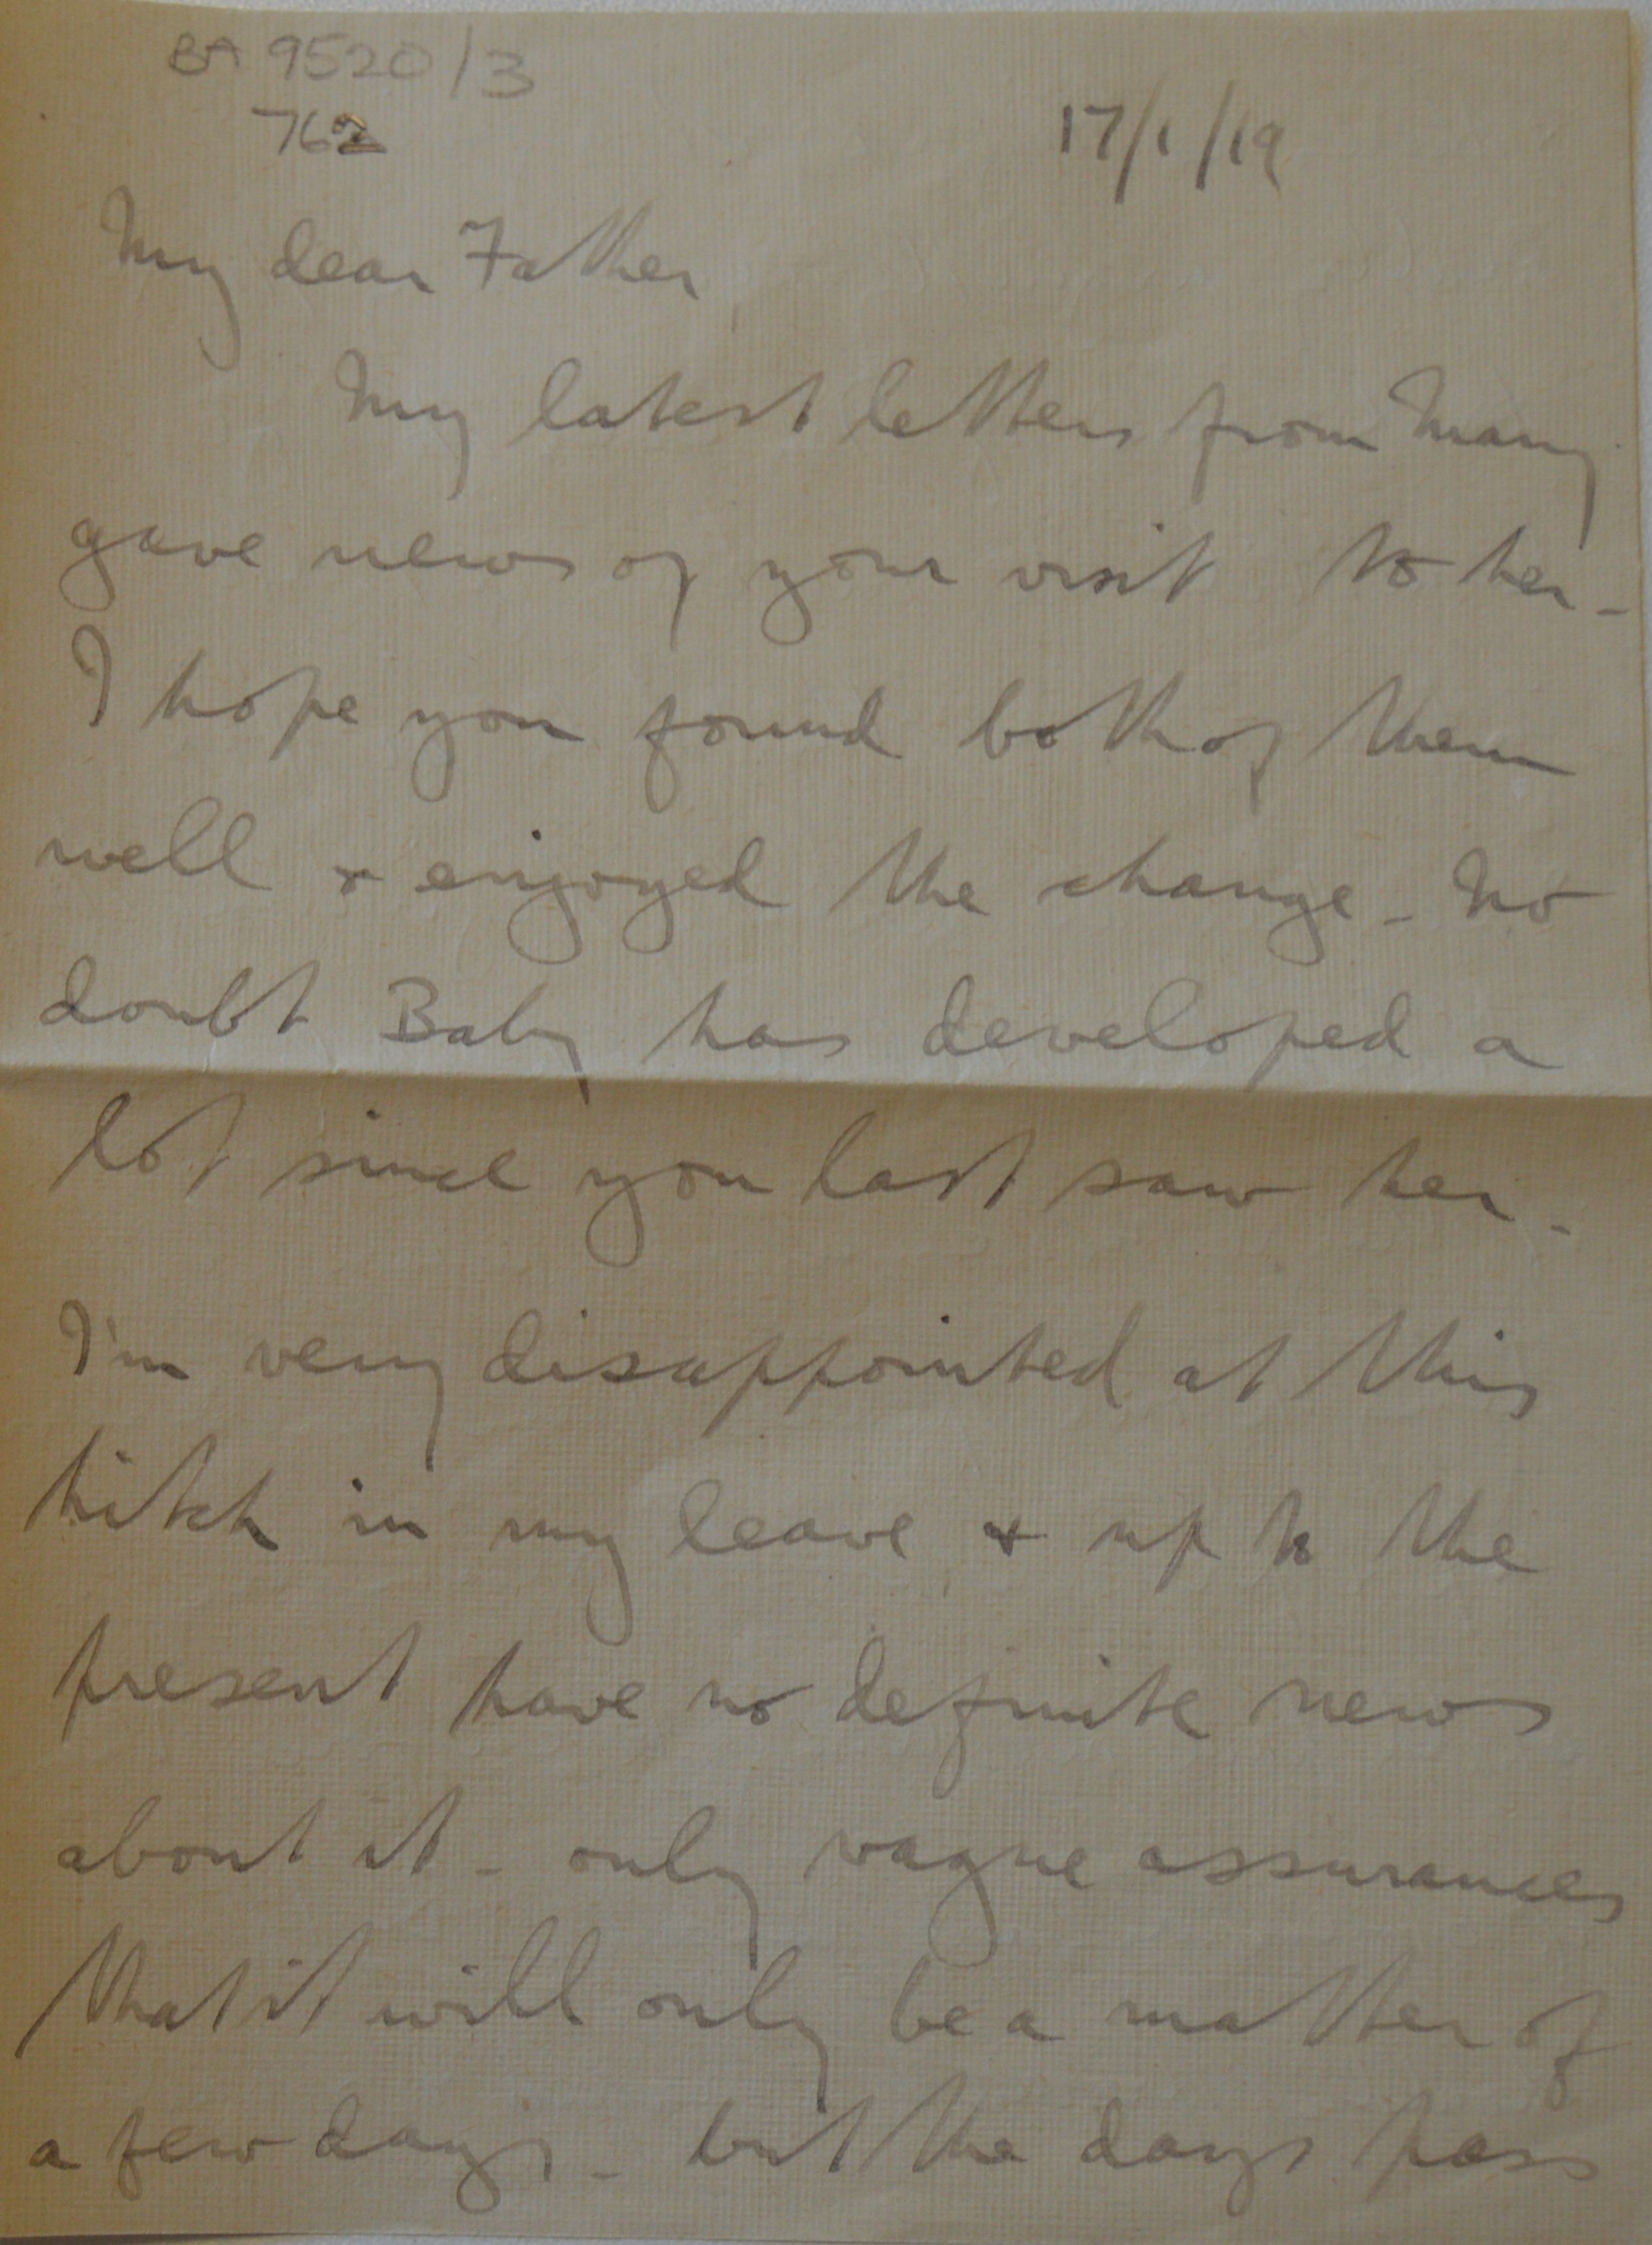 BA 9520/3
762
17/1/19
My dear Father
My latest letters from Mary
gave news of your visit to her -
I hope you found both of them
well & enjoyed the change - No
doubt Baby has developed a
lot since you last saw her -
I'm very disappointed at this
hitch in my leave & up to the
present have no definite news
about it - only vague assurances
that it will only be a matter of
a few days - but the days pass